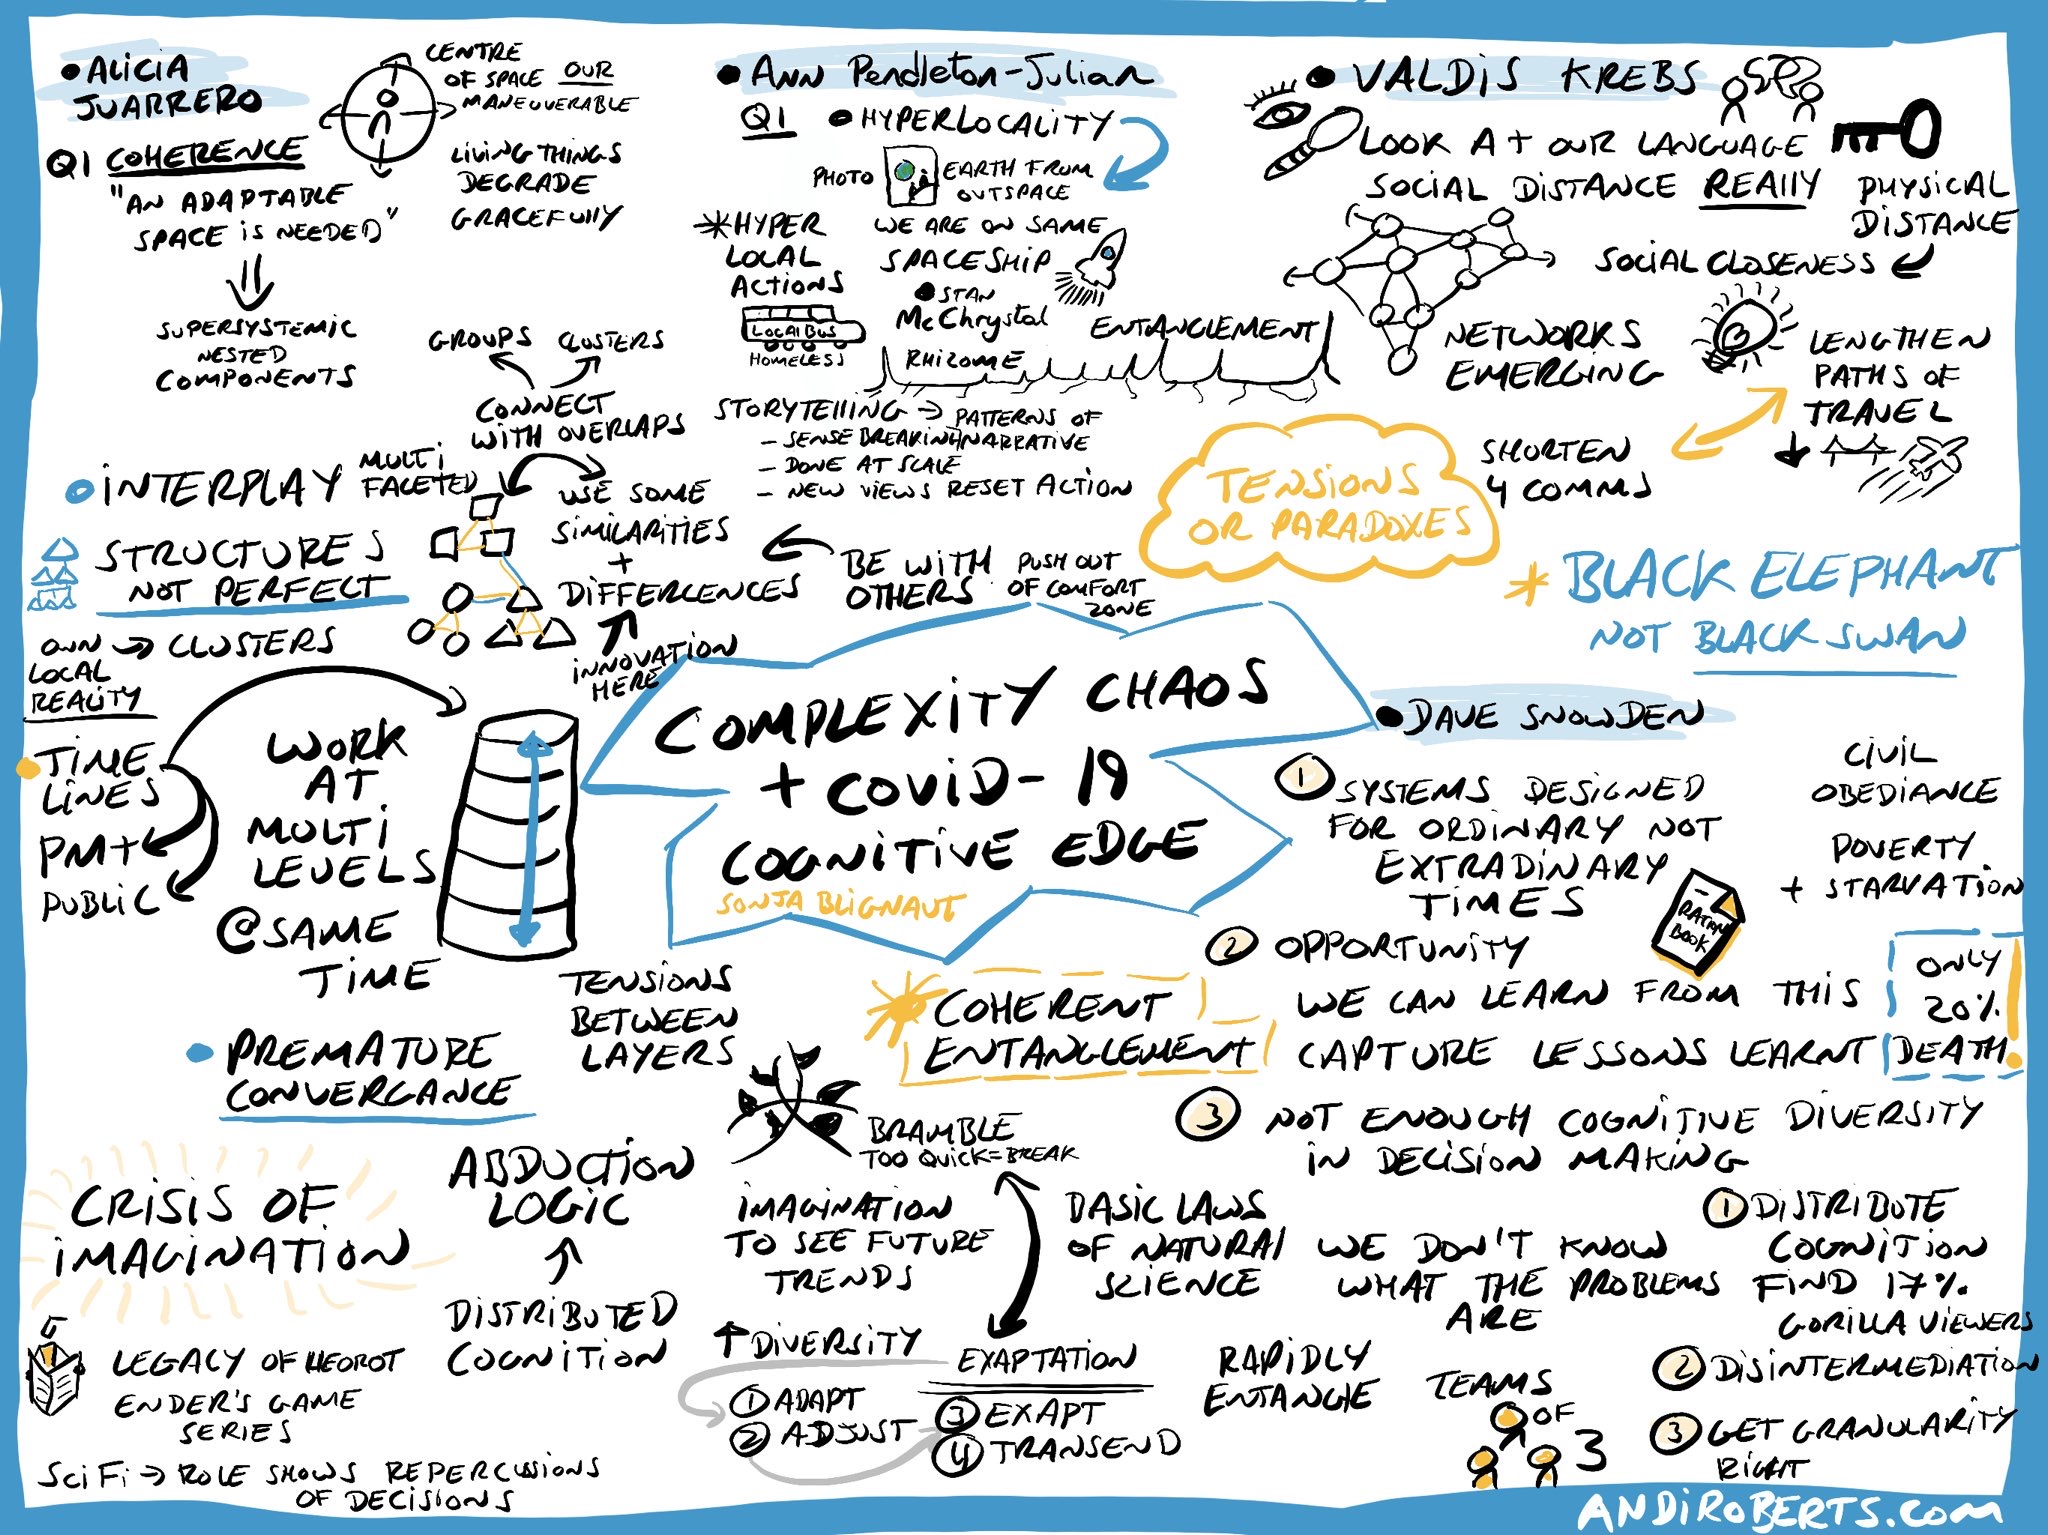 • ALICIA
JUARRERO
CENTRE
OF SPACE OUR
MANEUVERABLE
Q1 COHERENCE
"AN ADAPTABLE
SPACE IS NEEDED"
LIVING THINGS
DEGRADE
GRACEFULLY
SUPERSYSTEMIC
NESTED
COMPONENTS
GROUPS
CLUSTERS
CONNECT
WITH OVERLAPS
• INTERPLAY
MULTI
FACETED
STRUCTURES
NOT PERFECT
USE SOME
SIMILARITIES
+
DIFFERCENCES
INNOVATION
HERE
BE WITH
OTHERS
PUSH OUT
OF COMFORT
ZONE
OWN → CLUSTERS
LOCAL
REALITY
TIME
LINES
PM+
PUBLIC
WORK
AT
MULTI
LEVELS
@SAME
TIME
TENSIONS
BETWEEN
LAYERS
• ANN Pendleton-Julian
Q1 • HYPERLOCALITY
PHOTO
EARTH FROM
OUTSPACE
* HYPER
LOCAL
ACTIONS
WE ARE ON SAME
SPACESHIP
LOCAL BUS
HOMELESS
• STAN
McChrystal
RHIZOME
ENTANGLEMENT
STORYTELLING → PATTERNS OF
- SENSE BREAKING NARRATIVE
- DONE AT SCALE
- NEW VIEWS RESET ACTION
• VALDIS KREBS
LOOK AT OUR LANGUAGE
SOCIAL DISTANCE REALLY
PHYSICAL
DISTANCE
SOCIAL CLOSENESS
NETWORKS
EMERGING
LENGTHEN
PATHS OF
TRAVEL
SHORTEN
4 COMMS
TENSIONS
OR PARADOXES
* BLACK ELEPHANT
NOT BLACK SWAN
COMPLEXITY CHAOS
+ COVID-19
COGNITIVE EDGE
SONJA BLIGNAUT
• DAVE SNOWDEN
1 SYSTEMS DESIGNED
FOR ORDINARY NOT
EXTRADINARY
TIMES
CIVIL
OBEDIANCE
POVERTY
+ STARVATION
BOOK
2 OPPORTUNITY
WE CAN LEARN FROM THIS
CAPTURE LESSONS LEARNT
ONLY
20%
DEATH!
3 NOT ENOUGH COGNITIVE DIVERSITY
IN DECISION MAKING
COHERENT
ENTANGLEMENT
• PREMATURE
CONVERGANCE
BRAMBLE
TOO QUICK = BREAK
CRISIS OF
IMAGINATION
ABDUCTION
LOGIC
DISTRIBUTED
COGNITION
IMAGINATION
TO SEE FUTURE
TRENDS
BASIC LAWS
OF NATURAL
SCIENCE
WE DON'T KNOW
WHAT THE PROBLEMS
ARE
1 DISTRIBUTE
COGNITION
FIND 17%
GORILLA VIEWERS
2 DISINTERMEDIATION
3 GET GRANULARITY
RIGHT
LEGACY OF HEOROT
ENDER'S GAME
SERIES
SCI FI → ROLE SHOWS REPERCUSSIONS
OF DECISIONS
↑ DIVERSITY
1 ADAPT
2 ADJUST
EXAPTATION
3 EXAPT
4 TRANSEND
RAPIDLY
ENTANGLE
TEAMS
OF
3
ANDIROBERTS.COM